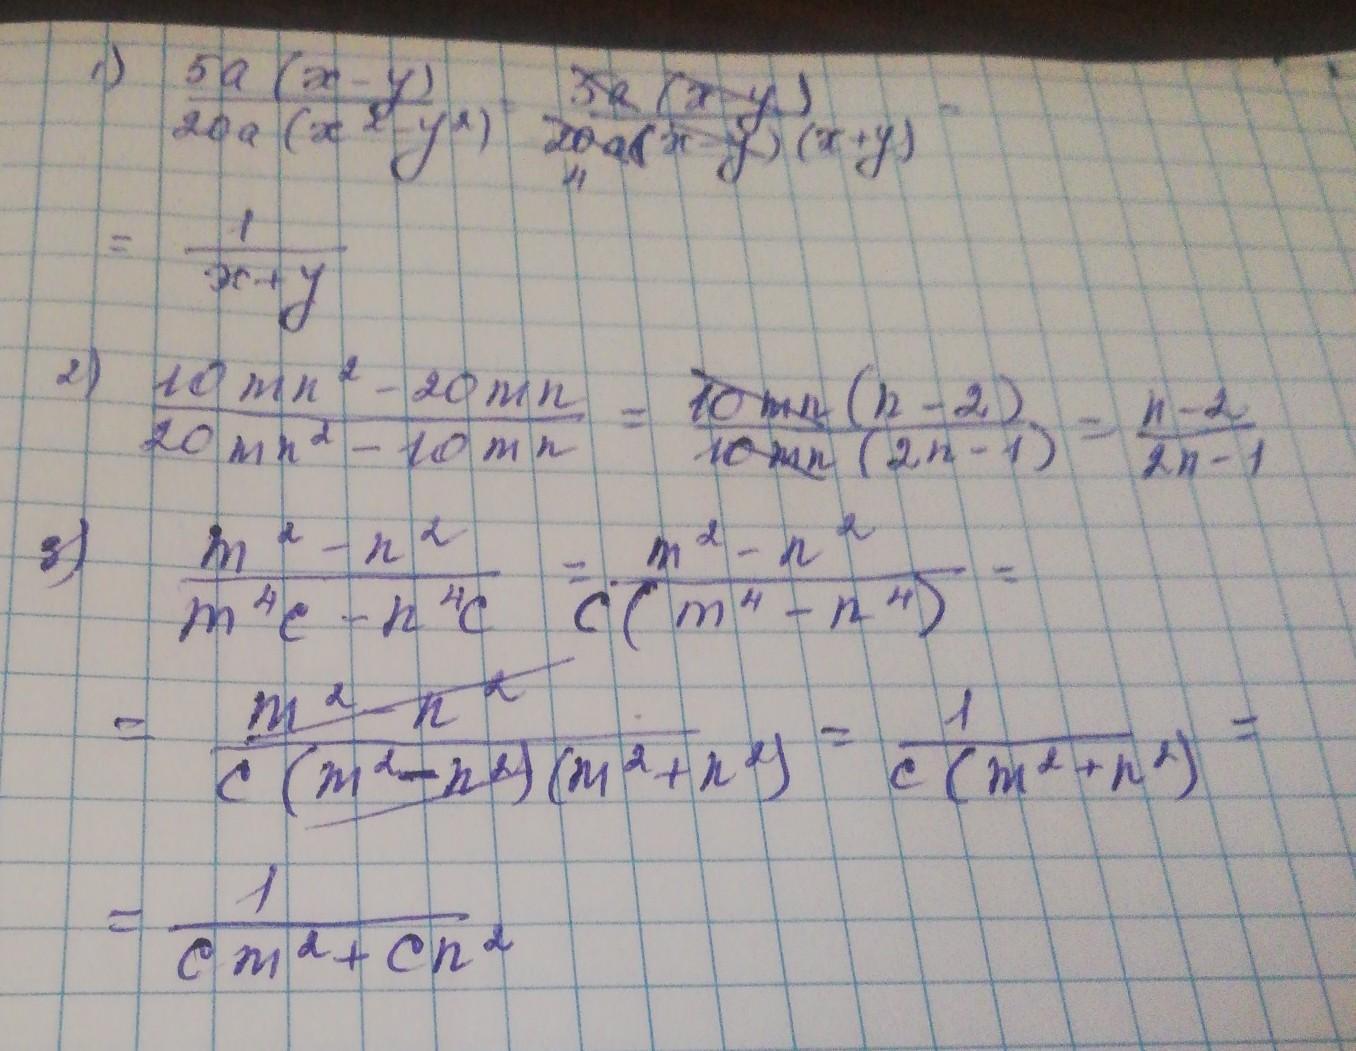 1) 5a(x-y)/20a(x²-y²) = 5a(x-y)/20a(x-y)(x+y) =
4
= 1/x+y
2) 10mn²-20mn/20mn²-10mn = 10mn(n-2)/10mn(2n-1) = n-2/2n-1
3) m²-n²/m⁴c-n⁴c = m²-n²/c(m⁴-n⁴) =
= m²-n²/c(m²-n²)(m²+n²) = 1/c(m²+n²) =
= 1/cm²+cn²